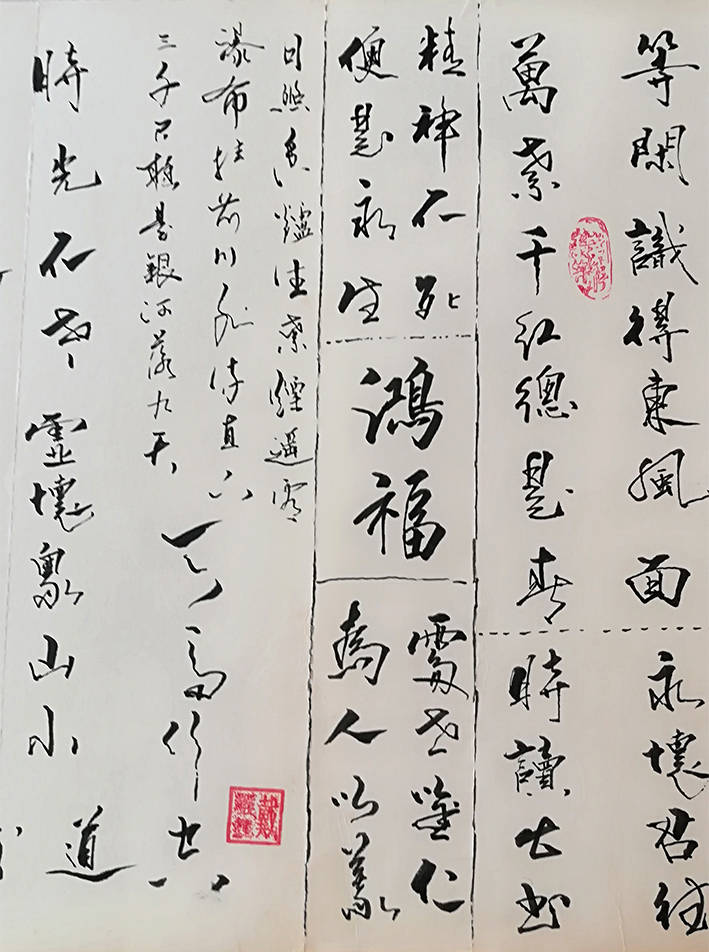 等閑識得東風面
萬紫千紅總是春
永懷
時讀
精神不死
便是永生
鴻福
處世唯仁
為人以義
日照香爐生紫煙遙看
瀑布挂前川飛流直下
三千尺疑是銀河落九天
時光不老虛懷
山小
道